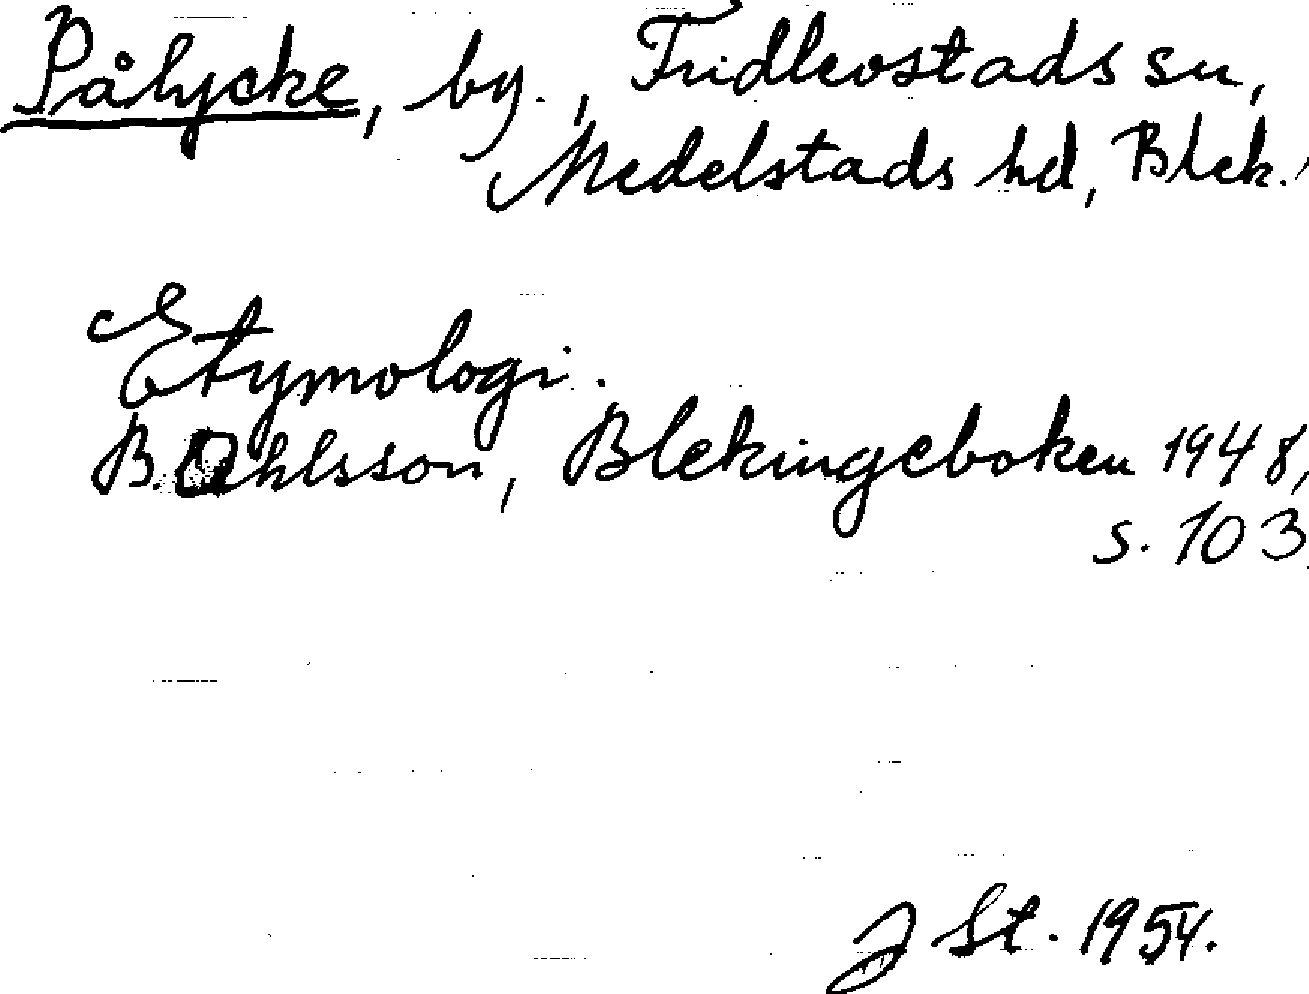 Pålycke, by., Fridlevstads sn,
Medelstads hd, Blek.
Etymologi.
B. Ohlsson, Blekingeboken 1948,
s. 103
J St. 1954.